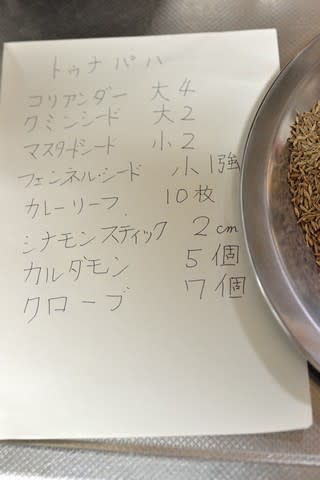 トゥナパハ
コリアンダー 大4
クミンシード 大2
マスタードシード 小2
フェンネルシード 小1強
カレーリーフ 10枚
シナモンスティック 2cm
カルダモン 5個
クローブ 7個